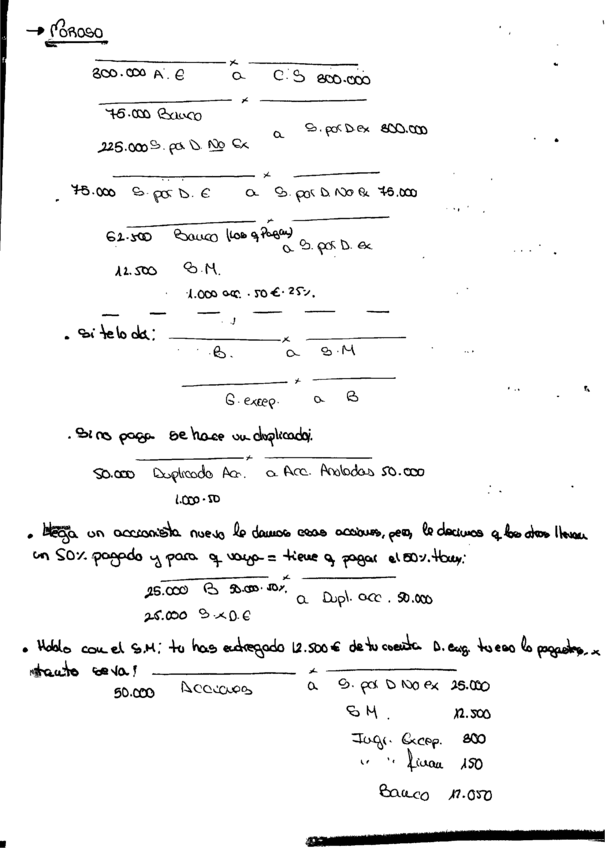 → MOROSO
300.000 A. E a C.S 300.000
75.000 Banco
225.000 S. por D. No Ex a S. por D ex 300.000
75.000 S. por D. E a S. por D. No Ex 75.000
62.500 Banco (los q Pagan)
a S. por D. ex
12.500 S.M.
1.000 acc. · 50 € · 25%.
• Si te lo da:
B. a S.M
G. excep. a B
• Si no paga se hace un duplicado:
50.000 Duplicado Acc. a Acc. Anotadas 50.000
1.000 · 50
• Llega un accionista nuevo le damos esas acciones, pero, le decimos q los otros llevan
un 50% pagado y para q vaya = tiene q pagar el 50%. Hoy:
25.000 B 50.000 · 50%
a Dupl. acc. 50.000
25.000 S. x D. E
• Hablo con el S.M: tu has entregado 12.500 € de tu cuenta D. exig. tu eso lo pagastes, x
tanto se va!
50.000 Acciones a S. por D No ex 25.000
S M. 12.500
Ingr. Excep. 300
" " finan 150
Banco 12.050